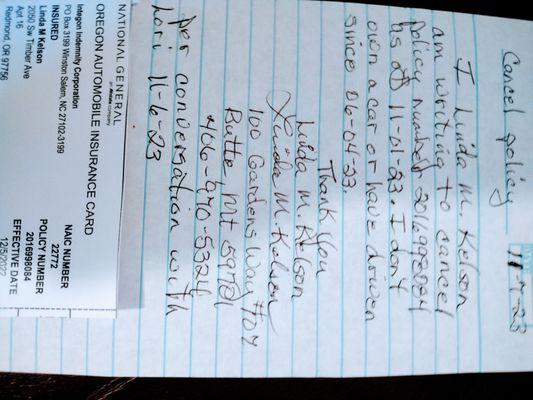 Cancel policy 11-7-23
I Linda M. Kelson
am writing to cancel
policy number 2016998084
as of 11-01-23. I don't
own a car or have driven
since 06-04-23.
Thank you
Linda M. Kelson
Linda M. Kelson
100 Gardens Way
Butte Mt 59701
406-970-5324
per conversation with
Lori 11-6-23
NATIONAL GENERAL
an Allstate company
OREGON AUTOMOBILE INSURANCE CARD
Integon Indemnity Corporation
PO Box 3199 Winston Salem, NC 27102-3199
INSURED
Linda M Kelson
2050 Sw Timber Ave
Apt 16
Redmond, OR 97756
NAIC NUMBER
22772
POLICY NUMBER
2016998084
EFFECTIVE DATE
12/5/2022